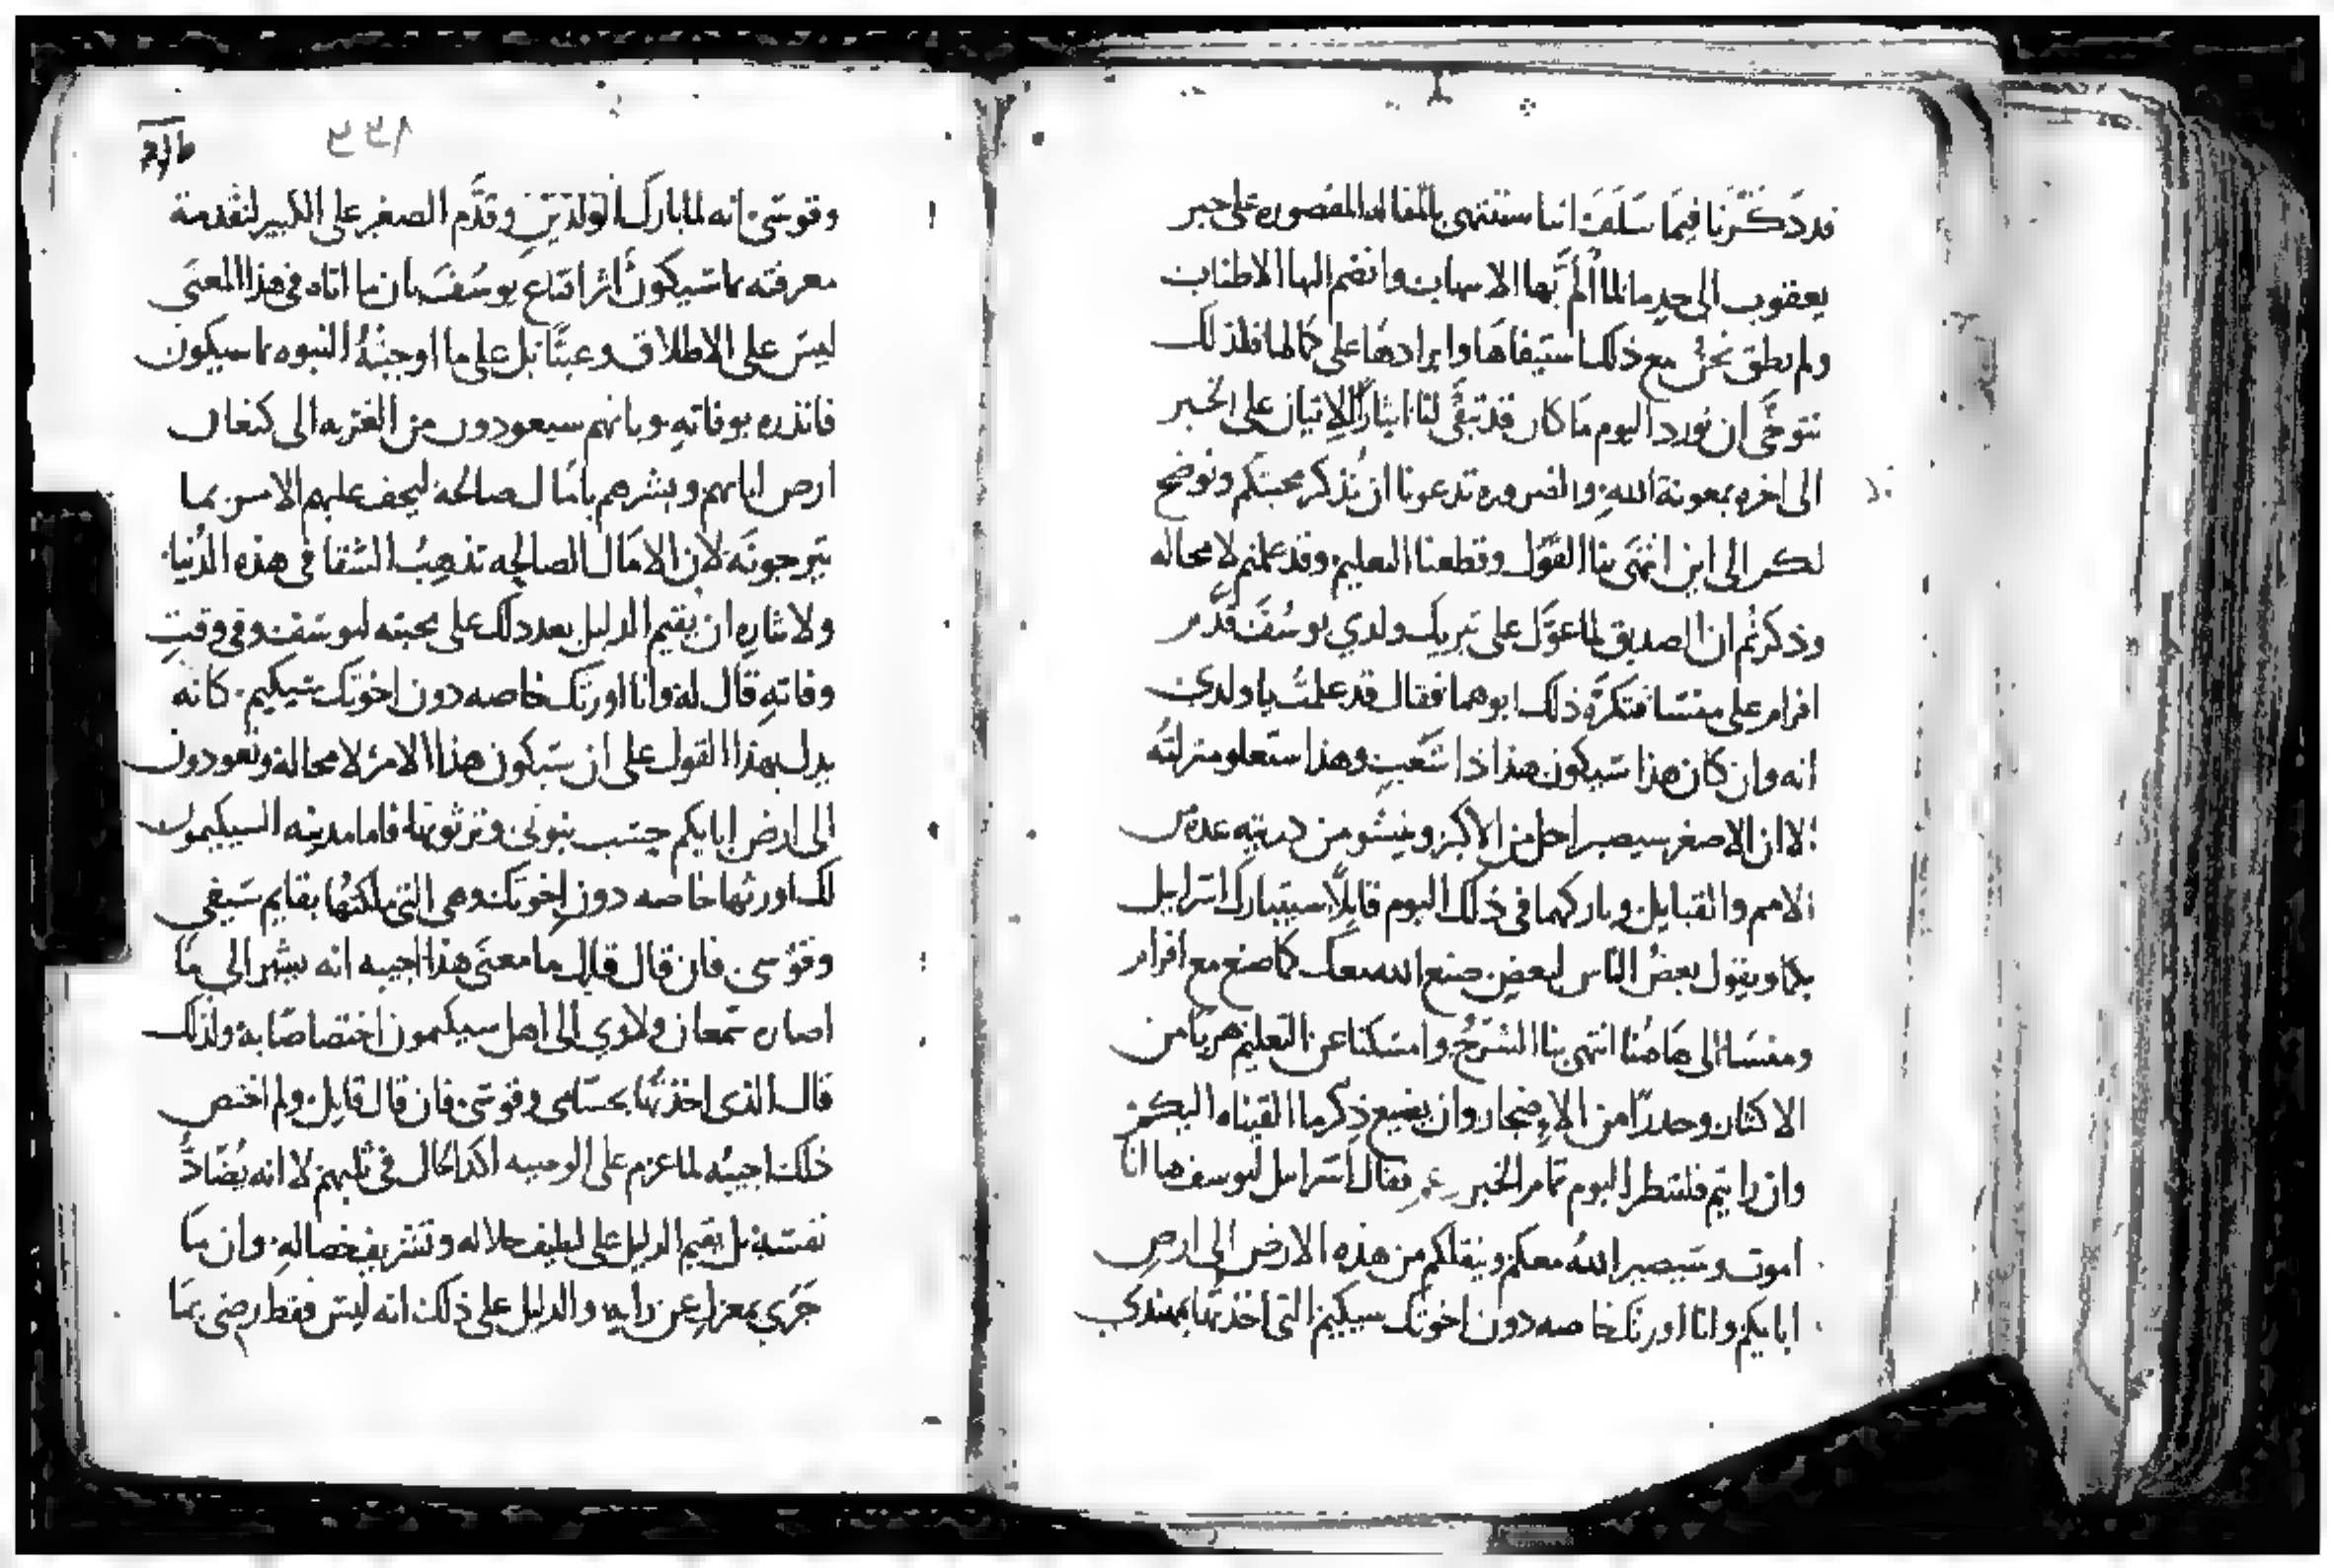 قد ذكرنا فيما سلف اننا سننتهي بالمقاله المقصوره على خبر
يعقوب الى حد ما لما الم بها الاسهاب وانضم اليها الاطناب
ولم نطق نحن مع ذلك استيفاها وايرادها على كمالها فلذلك
نتوخى ان نورد اليوم ما كان قد تبقى لنا ايثارًا للاتيان على الخبر
الى اخره بمعونة الله والضروره تدعونا ان نذكر محبتكم ونوضح
لكم الى اين انتهى بنا القول وقطعنا التعليم وقد علمتم لا محاله
وذكرتم ان الصديق لما عول على تبريك ولدي يوسف قدم
افرام على منسا فتكره ذلك ابوهما فقال قد علمت يا ولدي
انه وان كان هذا سيكون هذا ذا شعب وهذا ستعلو منزلته
الا ان الاصغر سيصير اجل من الاكبر وينشو من ذريته عده من
الامم والقبايل وباركهما في ذلك اليوم قايلًا سيتبارك اسراييل
بكما ويقول بعض الناس لبعض صنع الله معك كما صنع مع افرام
ومنسا الى هاهنا انتهى بنا الشرح وامسكنا عن التعليم هربًا من
الاكثار وحذرًا من الاضجار وان يضيع ذكر ما القيناه اليكم
وان رايتم فلننظر اليوم تمام الخبر فقال اسراييل ليوسف ها انا
اموت وسيصير الله معكم وينقلكم من هذه الارض الى ارض
ابايكم وانا اورثك خاصه دون اخوتك سيكيم التي اخذتها بمهندي
وقوسي انه لما بارك الولدين وقدم الصغير على الكبير لتقدمة
معرفته بما سيكون اثر اقناع يوسف بان ما اتاه في هذا المعنى
ليس على الاطلاق وعبثًا بل على ما اوجبته النبوه بما سيكون
فانذره بوفاته وبانهم سيعودون من الغربه الى كنعان
ارض ابايهم وبشرهم بامال صالحة ليخف عليهم الامر بما
يترجونه لان الامال الصالحه تذهب الشقا في هذه الدنيا
ولايثاره ان يقيم الدليل بعد ذلك على محبته ليوسف وفي وقت
وفاته قال له وانا اورثك خاصه دون اخوتك سيكيم كانه
يدل بهذا القول على ان سيكون هذا الامر لا محالة وتعودون
الى ارض ابايكم حسب نبوتي وترثونها فاما مدينه السيكيمون
لك اورثها خاصه دون اخوتك وهي التي ملكتها بقايم سيفي
وقوسي فان قال قايل ما معنى هذا اجيبه انه يشير الى ما
اصاب شمعان ولاوي الى اهل سيكيمون اختصاصًا به ولذلك
قال الذي اخذتها بحسامي وقوسي فان قال قايل ولم اختص
ذلك اجيبه لما عزم على الوصيه اكد الحال في ثلبهم لا انه يضاد
نفسه بل يقيم الدليل على لطيف خلاله وتشريف خصاله وان ما
جرى بمعزل عن رايه والدليل على ذلك انه ليس فقط رضي بما